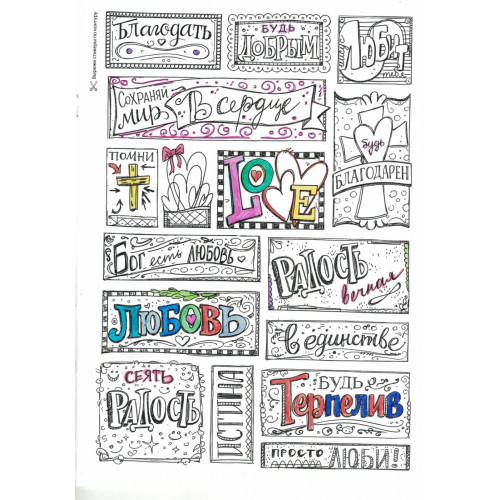 Вырежи стикеры по контуру
Благодать
БУДЬ
ДОБРЫМ
ЛЮБИТ
тебя
СОХРАНЯЙ
МИР
В сердце
ПОМНИ
LOVE
будь
БЛАГОДАРЕН
Бог есть ЛЮБОВЬ
РАДОСТЬ
вечная
ЛЮБОВЬ
в единстве
СЕЯТЬ
РАДОСТЬ
ИСТИНА
БУДЬ
Терпелив
ПРОСТО ЛЮБИ!